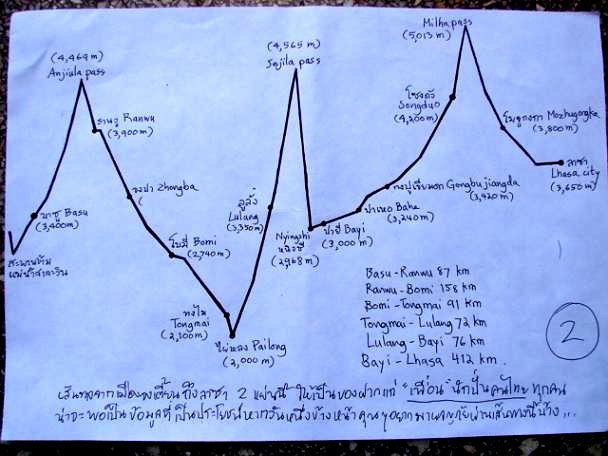 (4,464m)
Anjiula pass
รานวู Ranwu
(3,900m)
บาซู Basu
(3,400m)
สะพานข้าม
แม่น้ำสาละวิน
จงปา Zhongba
(
โบมี่ Bomi
(2,740m)
ทงไม
Tongmai
(2,100m)
ไผ่หลง Pailong
(2,000m)
(4,565m)
Sejila pass
ลูลั่ง
Lulang
(3,350m)
Nyingchi
หลินจือ
(2,968m)
ปายี่ Bayi
(3,000m)
ปาเหอ Bahe
(3,240m)
กงปู้เจียงต๋า Gongbujiangda
(3,420m)
โซงตัว
Songduo
(4,200m)
Milha pass
(5,013m)
โมจูกงกา Mozhugongka
(3,800m)
ลาซา
Lhasa city
(3,650m)
Basu-Ranwu 87 km
Ranwu-Bomi 158 km
Bomi-Tongmai 91 km
Tongmai-Lulang 72 km
Lulang-Bayi 76 km
Bayi-Lhasa 412 km
2
เส้นทางจากเมืองจงเตี้ยนถึงลาซา 2 แผ่นนี้ ให้เป็นของฝากแก่ "เพื่อน" นักปั่นคนไทย ทุกคน
น่าจะพอเป็นข้อมูลที่เป็นประโยชน์หากวันหนึ่งข้างหน้าคุณๆอยากมาผจญภัยผ่านเส้นทางนี้บ้าง...